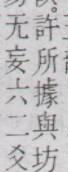 許所據與坊
无妄六二爻